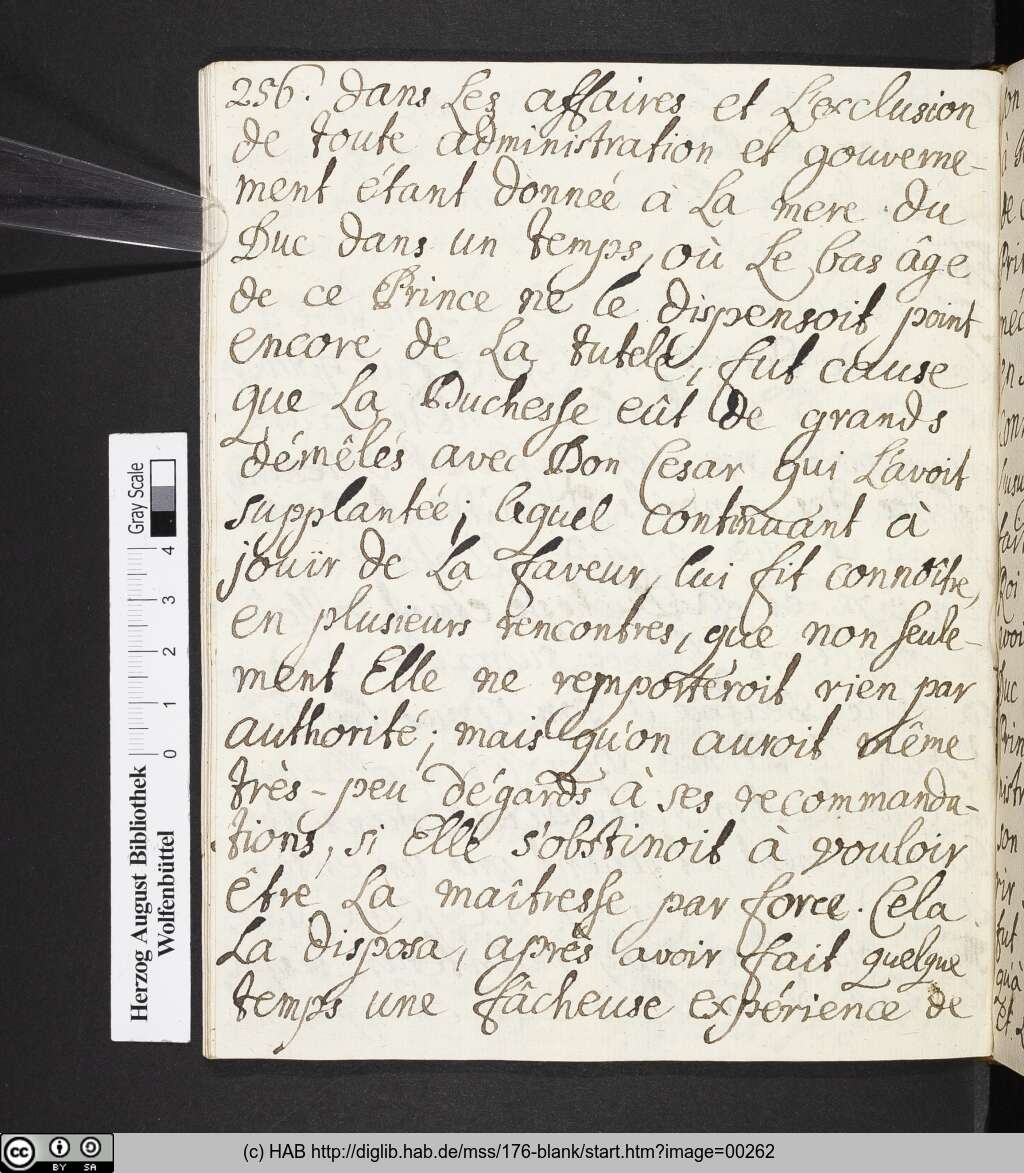 256. dans Les affaires et L'exclusion
de toute administration et gouverne-
ment étant donneé à La mere du
Duc dans un temps, où Le bas âge
de ce Prince ne le dispensoit point
encore de La tutele, fut cause
que La Duchesse eût de grands
démêlés avec Don Cesar qui L'avoit
supplantée; lequel continuant à
jouïr de La faveur, lui fit connoître,
en plusieurs rencontres, que non seule-
ment Elle ne remporteroit rien par
authorité; mais qu'on auroit même
très-peu d'égards à ses recommanda-
tions, si Elle s'obstinoit à vouloir
être La maîtresse par force. Cela
La disposa, après avoir fait quelque
temps une fâcheuse expérience de
Gray Scale
0 1 2 3 4
Herzog August Bibliothek
Wolfenbüttel
CC BY SA
(c) HAB http://diglib.hab.de/mss/176-blank/start.htm?image=00262